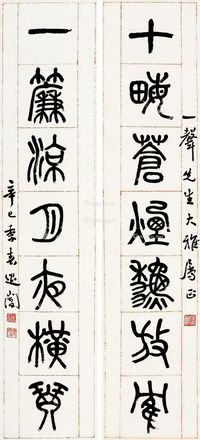 一聲先生大雅屬正
十畮蒼煙龝放隺
一簾涼月夜横琴
辛巳季春